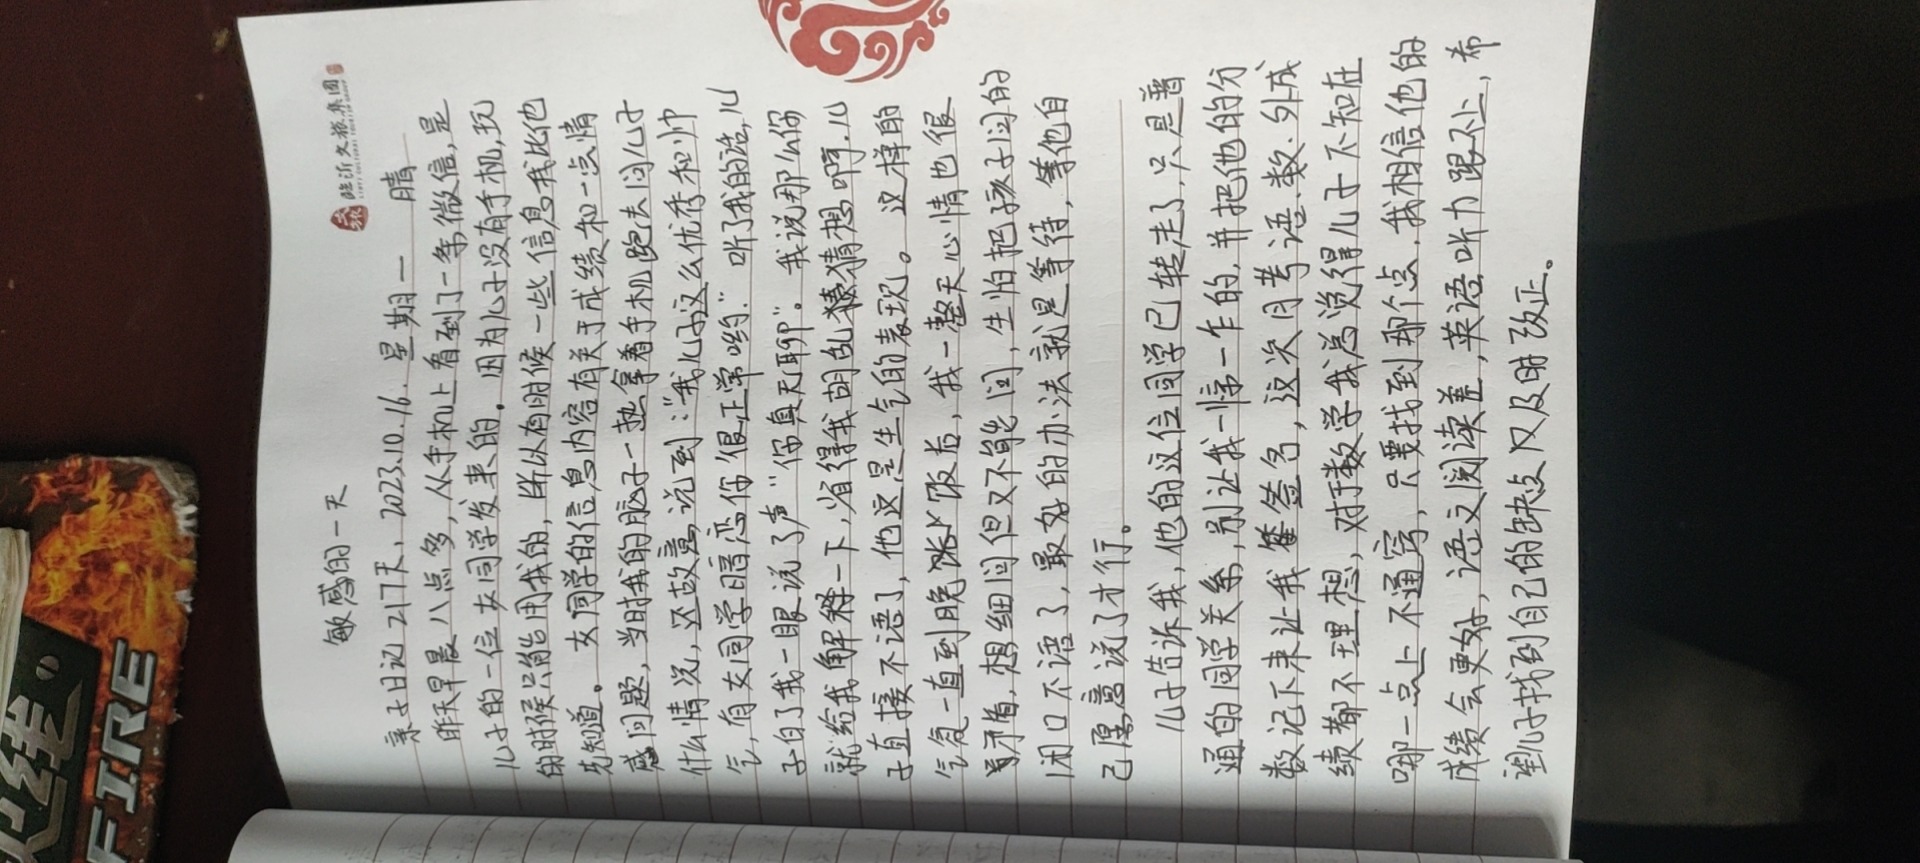 临沂文旅集团
敏感的一天
亲子日记217天，2023.10.16.星期一 晴
昨天早晨八点多，从手机上看到了一条微信，是
儿子的一位女同学发来的。因为儿子没有手机，玩
的时候只能用我的，所以有时候一些信息我比他
先知道。女同学的信息内容有关于成绩和一点情
感问题，当时我的脑子一热拿着手机跑去问儿子
什么情况，还故意说到：“我儿子这么优秀和帅
气，有女同学暗恋你很正常哟.”听了我的话，儿
子白了我一眼说了声“你真无聊”。我说那么你
就给我解释一下，省得我胡乱猜想啊.儿
子直接不语了，他这是生气的表现。这样的
气氛一直到晚饭后，我一整天心情也很
矛盾，想细问但又不能问，生怕把孩子问的
闭口不语了，最好的办法就是等待，等他自
己愿意说了才行。
儿子告诉我，他的这位同学已转走了，只是普
通的同学关系，别让我一惊一乍的，并把他的分
数记下来让我签签名，这次月考语、数、外成
绩都不理想，对于数学我总觉得儿子不知在
哪一点上不通窍，只要找到那个点，我相信他的
成绩会更好，语文阅读差，英语听力跟不上，希
望儿子找到自己的缺点及时改正。
FIRE